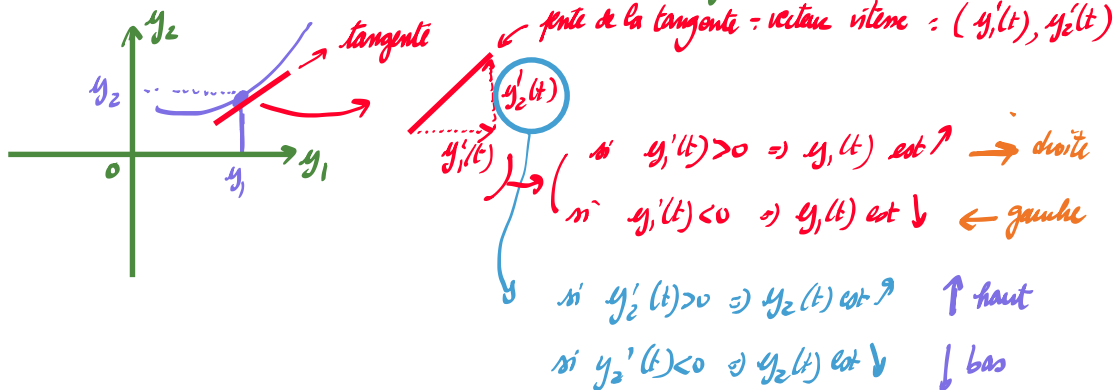 y₂
tangente
pente de la tangente = vecteur vitesse = (y₁'(t), y₂'(t))
y₂
y₂'(t)
0
y₁
y₁
y₁'(t)
si y₁'(t)>0 => y₁(t) est ↗ → droite
si y₁'(t)<0 => y₁(t) est ↓ ← gauche
si y₂'(t)>0 => y₂(t) est ↗ ↑ haut
si y₂'(t)<0 => y₂(t) est ↓ ↓ bas